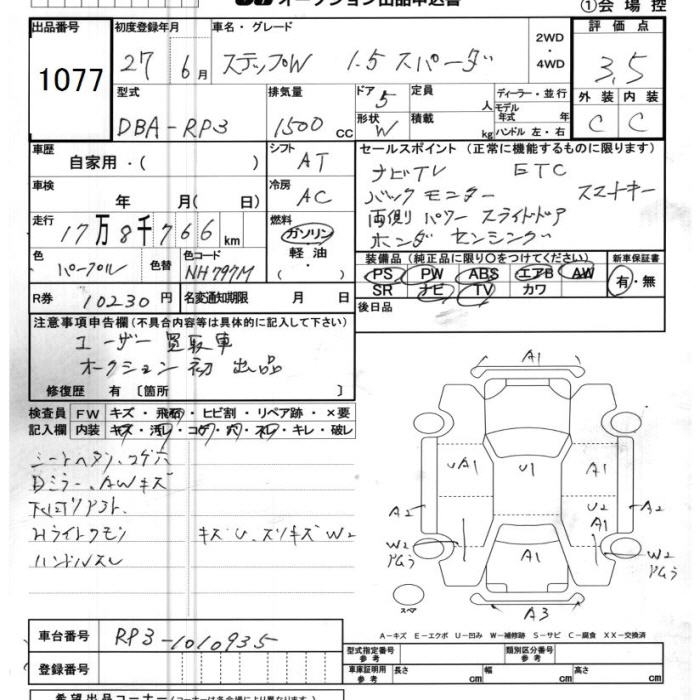 オークション出品申込書
①会場控
出品番号 初度登録年月 車名・グレード 評価点
1077 27 6月 ステップW 1.5 スパーダ 2WD・4WD 3,5
型式 排気量 ドア 5 定員 人 ディーラー・並行 外装 内装
DBA-RP3 1500cc 形状 W 積載 kg モデル年式 年 ハンドル 左・右 C C
車歴 シフト セールスポイント (正常に機能するものに限ります)
自家用・( ) AT ナビTV ETC
車検 冷房 バックモニター スマートキー
年 月(日) AC 両側パワースライドドア
走行 燃料 ホンダ センシング
17万8千766km ガソリン・軽油
色 色替 色コード 装備品 (純正品に限り○をつけてください) 新車保証書
パープル NH797M PS PW ABS エアB AW 有・無
R券 10230円 名変通知期限 月 日 SR ナビ TV カワ
後日品
注意事項申告欄 (不具合内容等は具体的に記入して下さい)
ユーザー買取車
オークション初出品
修復歴 有 〔箇所 〕
検査員 FW キズ・飛石・ヒビ割・リペア跡・×要
記入欄 内装 キズ・汚レ・コゲ・穴・スレ・キレ・破レ
シートヘタリ、コゲ穴
Dミラー、AWキズ
下回りサビ
Hライトクモリ キズU、スリキズW2
ハンドルスレ
A1
UA1 U1 A1
A2 U2 A1 A2
W2 ムラ A1 W2 ムラ
スペア A3
A-キズ E-エクボ U-凹み W-補修跡 S-サビ C-腐食 XX-交換済
車台番号 RP3-1010935
登録番号
型式指定番号 参考 類別区分番号 参考
車庫証明用 参考 長さ cm 幅 cm 高さ cm
希望出品コーナー